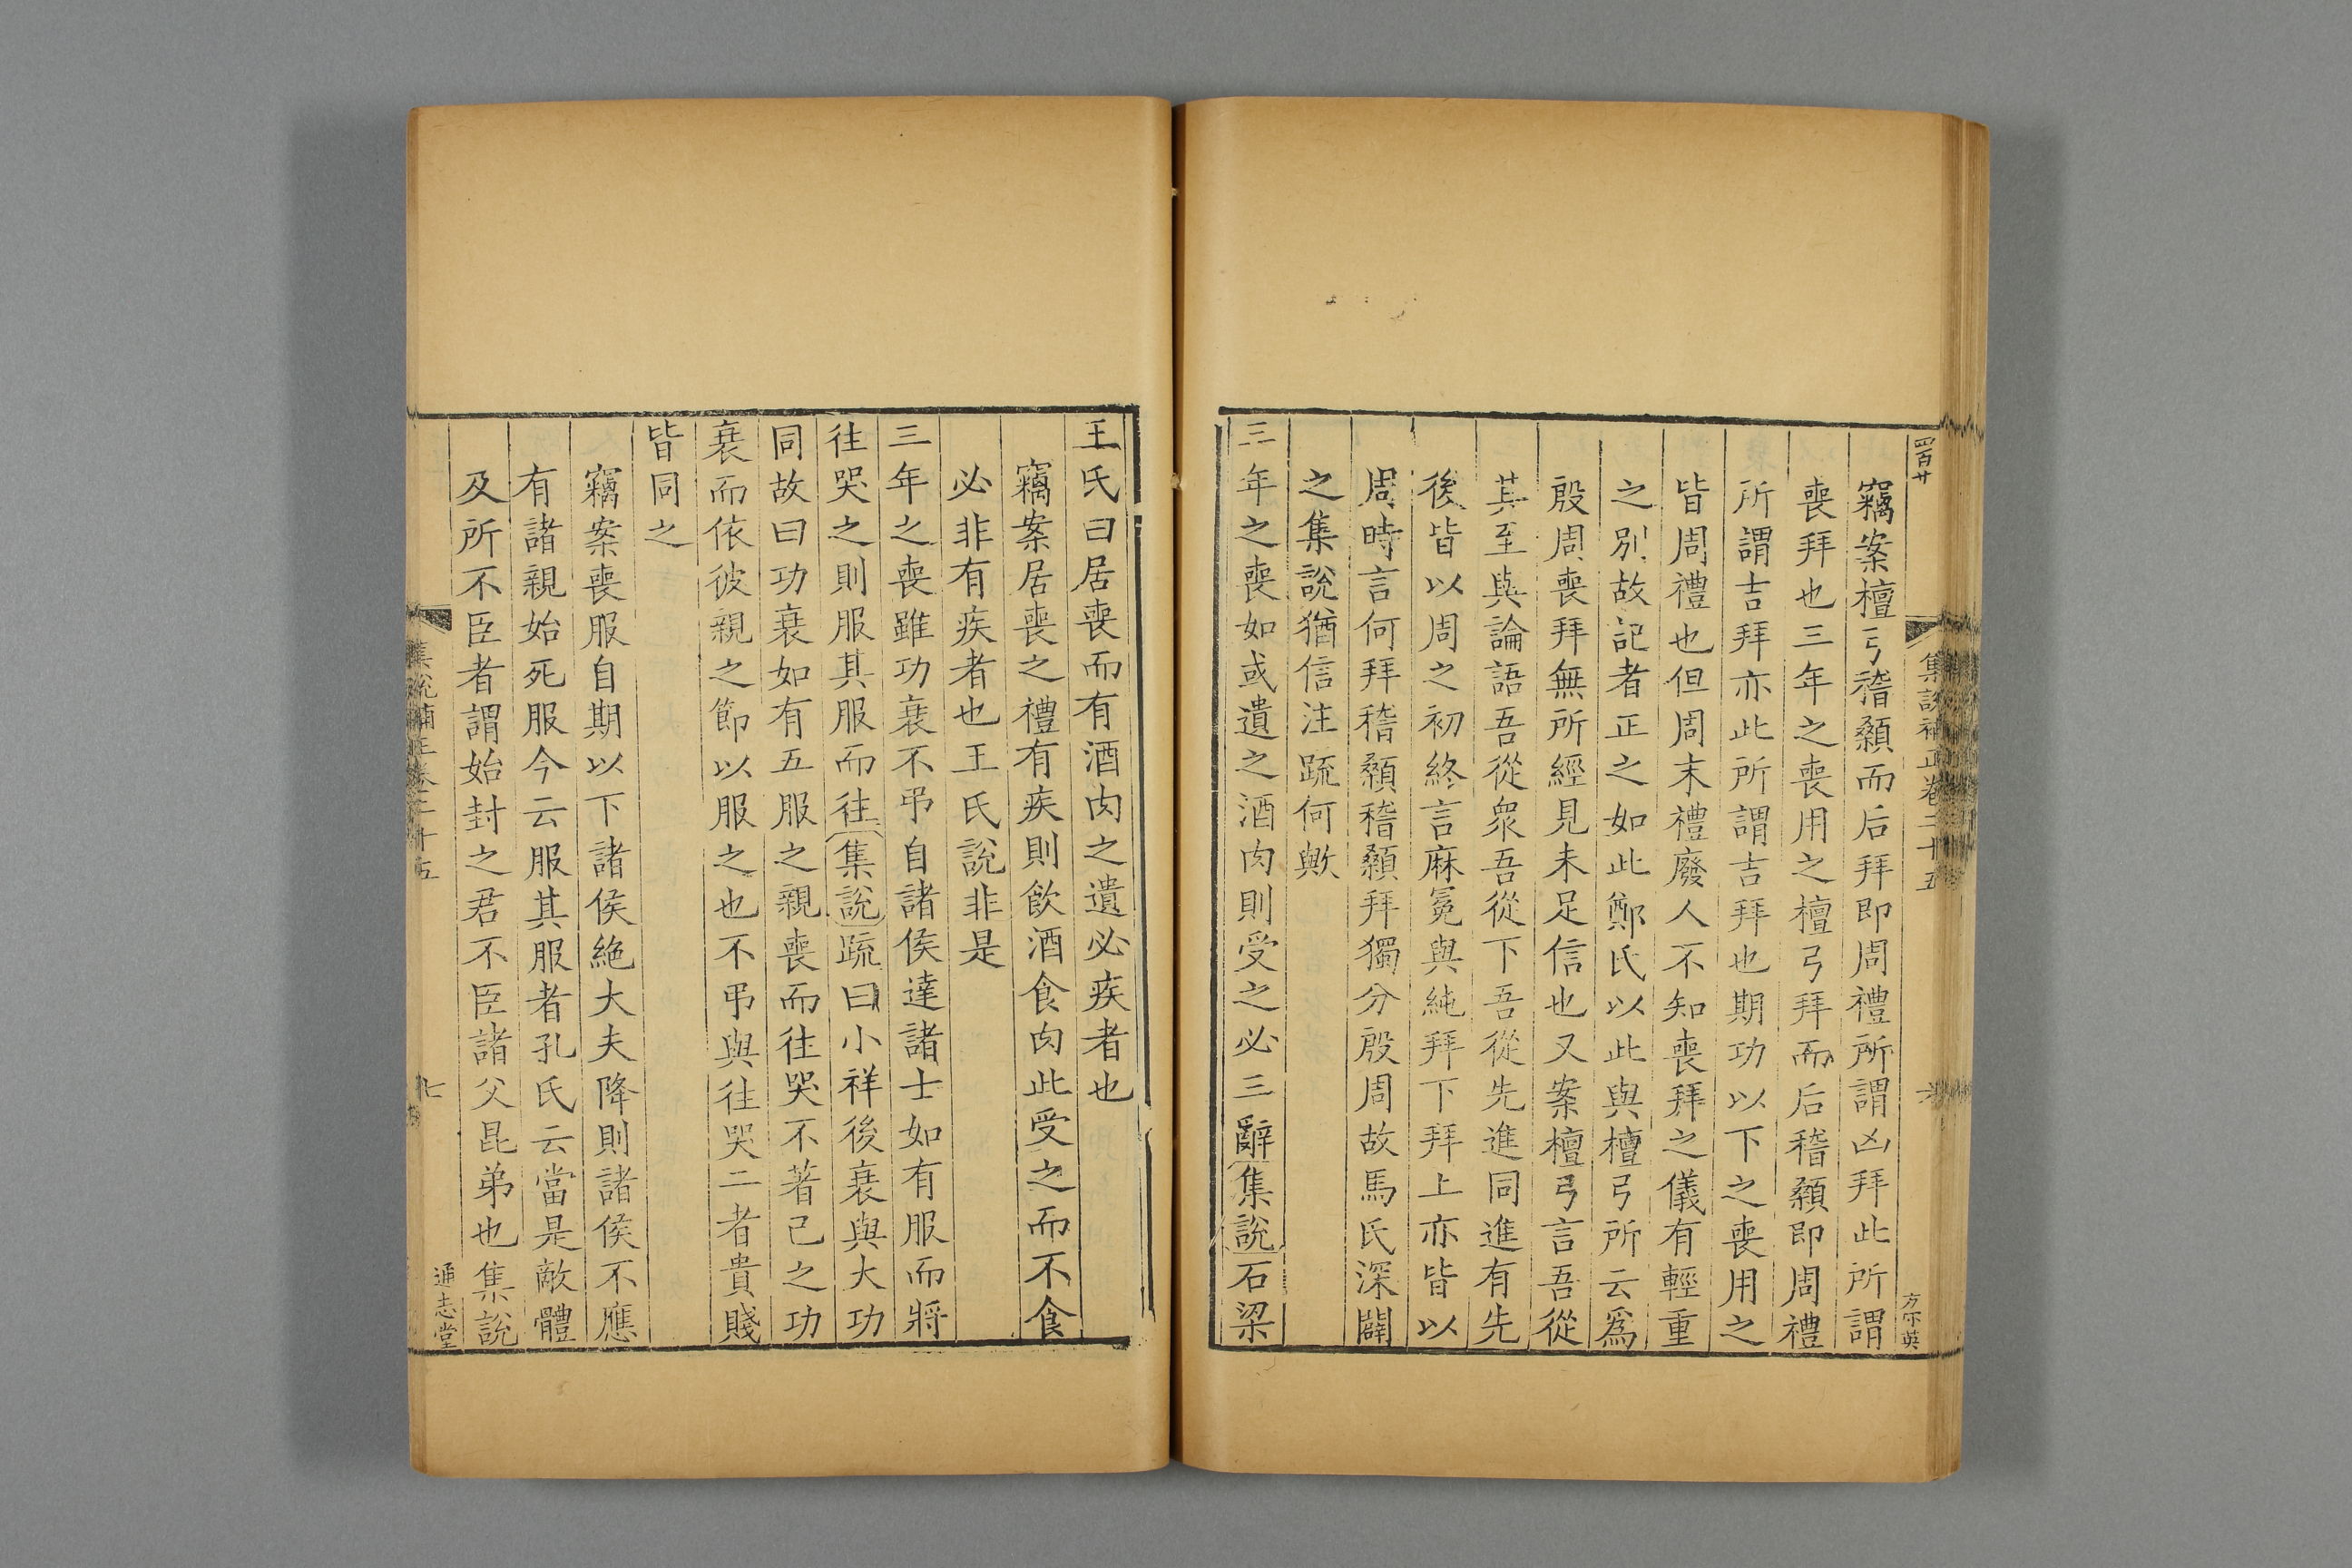 四百廿
集說補正卷二十五
方字英
竊案檀弓稽顙而后拜即周禮所謂凶拜此所謂
喪拜也三年之喪用之檀弓拜而后稽顙即周禮
所謂吉拜亦此所謂吉拜也期功以下之喪用之
皆周禮也但周末禮廢人不知喪拜之儀有輕重
之別故記者正之如此鄭氏以此與檀弓所云為
殷周喪拜無所經見未足信也又案檀弓言吾從
其至與論語吾從衆吾從下吾從先進同進有先
後皆以周之初終言麻冕與純拜下拜上亦皆以
周時言何拜稽顙稽顙拜獨分殷周故馬氏深闢
之集說猶信注疏何歟
三年之喪如或遺之酒肉則受之必三辭集說石梁
王氏曰居喪而有酒肉之遺必疾者也
竊案居喪之禮有疾則飲酒食肉此受之而不食
必非有疾者也王氏說非是
三年之喪雖功衰不弔自諸侯達諸士如有服而將
往哭之則服其服而往集說疏曰小祥後衰與大功
同故曰功衰如有五服之親喪而往哭不著己之功
衰而依彼親之節以服之也不弔與往哭二者貴賤
皆同之
竊案喪服自期以下諸侯絕大夫降則諸侯不應
有諸親始死服今云服其服者孔氏云當是敵體
及所不臣者謂始封之君不臣諸父昆弟也集說
集說補正卷二十五
七
通志堂